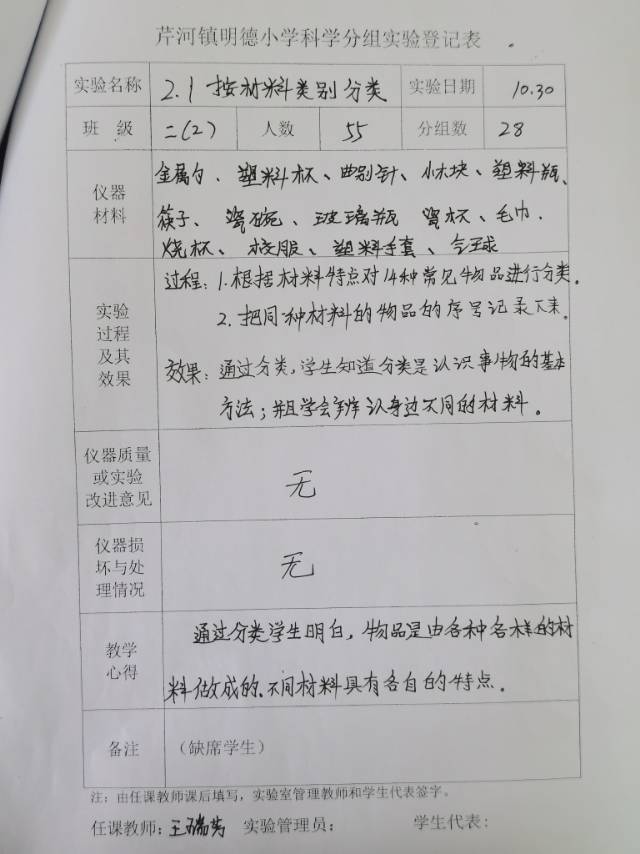 芹河镇明德小学科学分组实验登记表
实验名称 2.1 按材料类别分类 实验日期 10.30
班 级 二(2) 人数 55 分组数 28
仪器
材料
金属勺、塑料杯、曲别针、小木块、塑料瓶、
筷子、瓷碗、玻璃瓶 瓷杯、毛巾、
烧杯、校服、塑料手套、气球
实验
过程
及其
效果
过程：1.根据材料特点对14种常见物品进行分类。
2.把同种材料的物品的序号记录下来。
效果：通过分类,学生知道分类是认识事物的基本
方法；并且学会辨认身边不同的材料。
仪器质量
或实验
改进意见
无
仪器损
坏与处
理情况
无
教学
心得
通过分类学生明白，物品是由各种各样的材
料做成的.不同材料具有各自的特点。
备注 （缺席学生）
注：由任课教师课后填写，实验室管理教师和学生代表签字。
任课教师：王瑞 实验管理员： 学生代表：